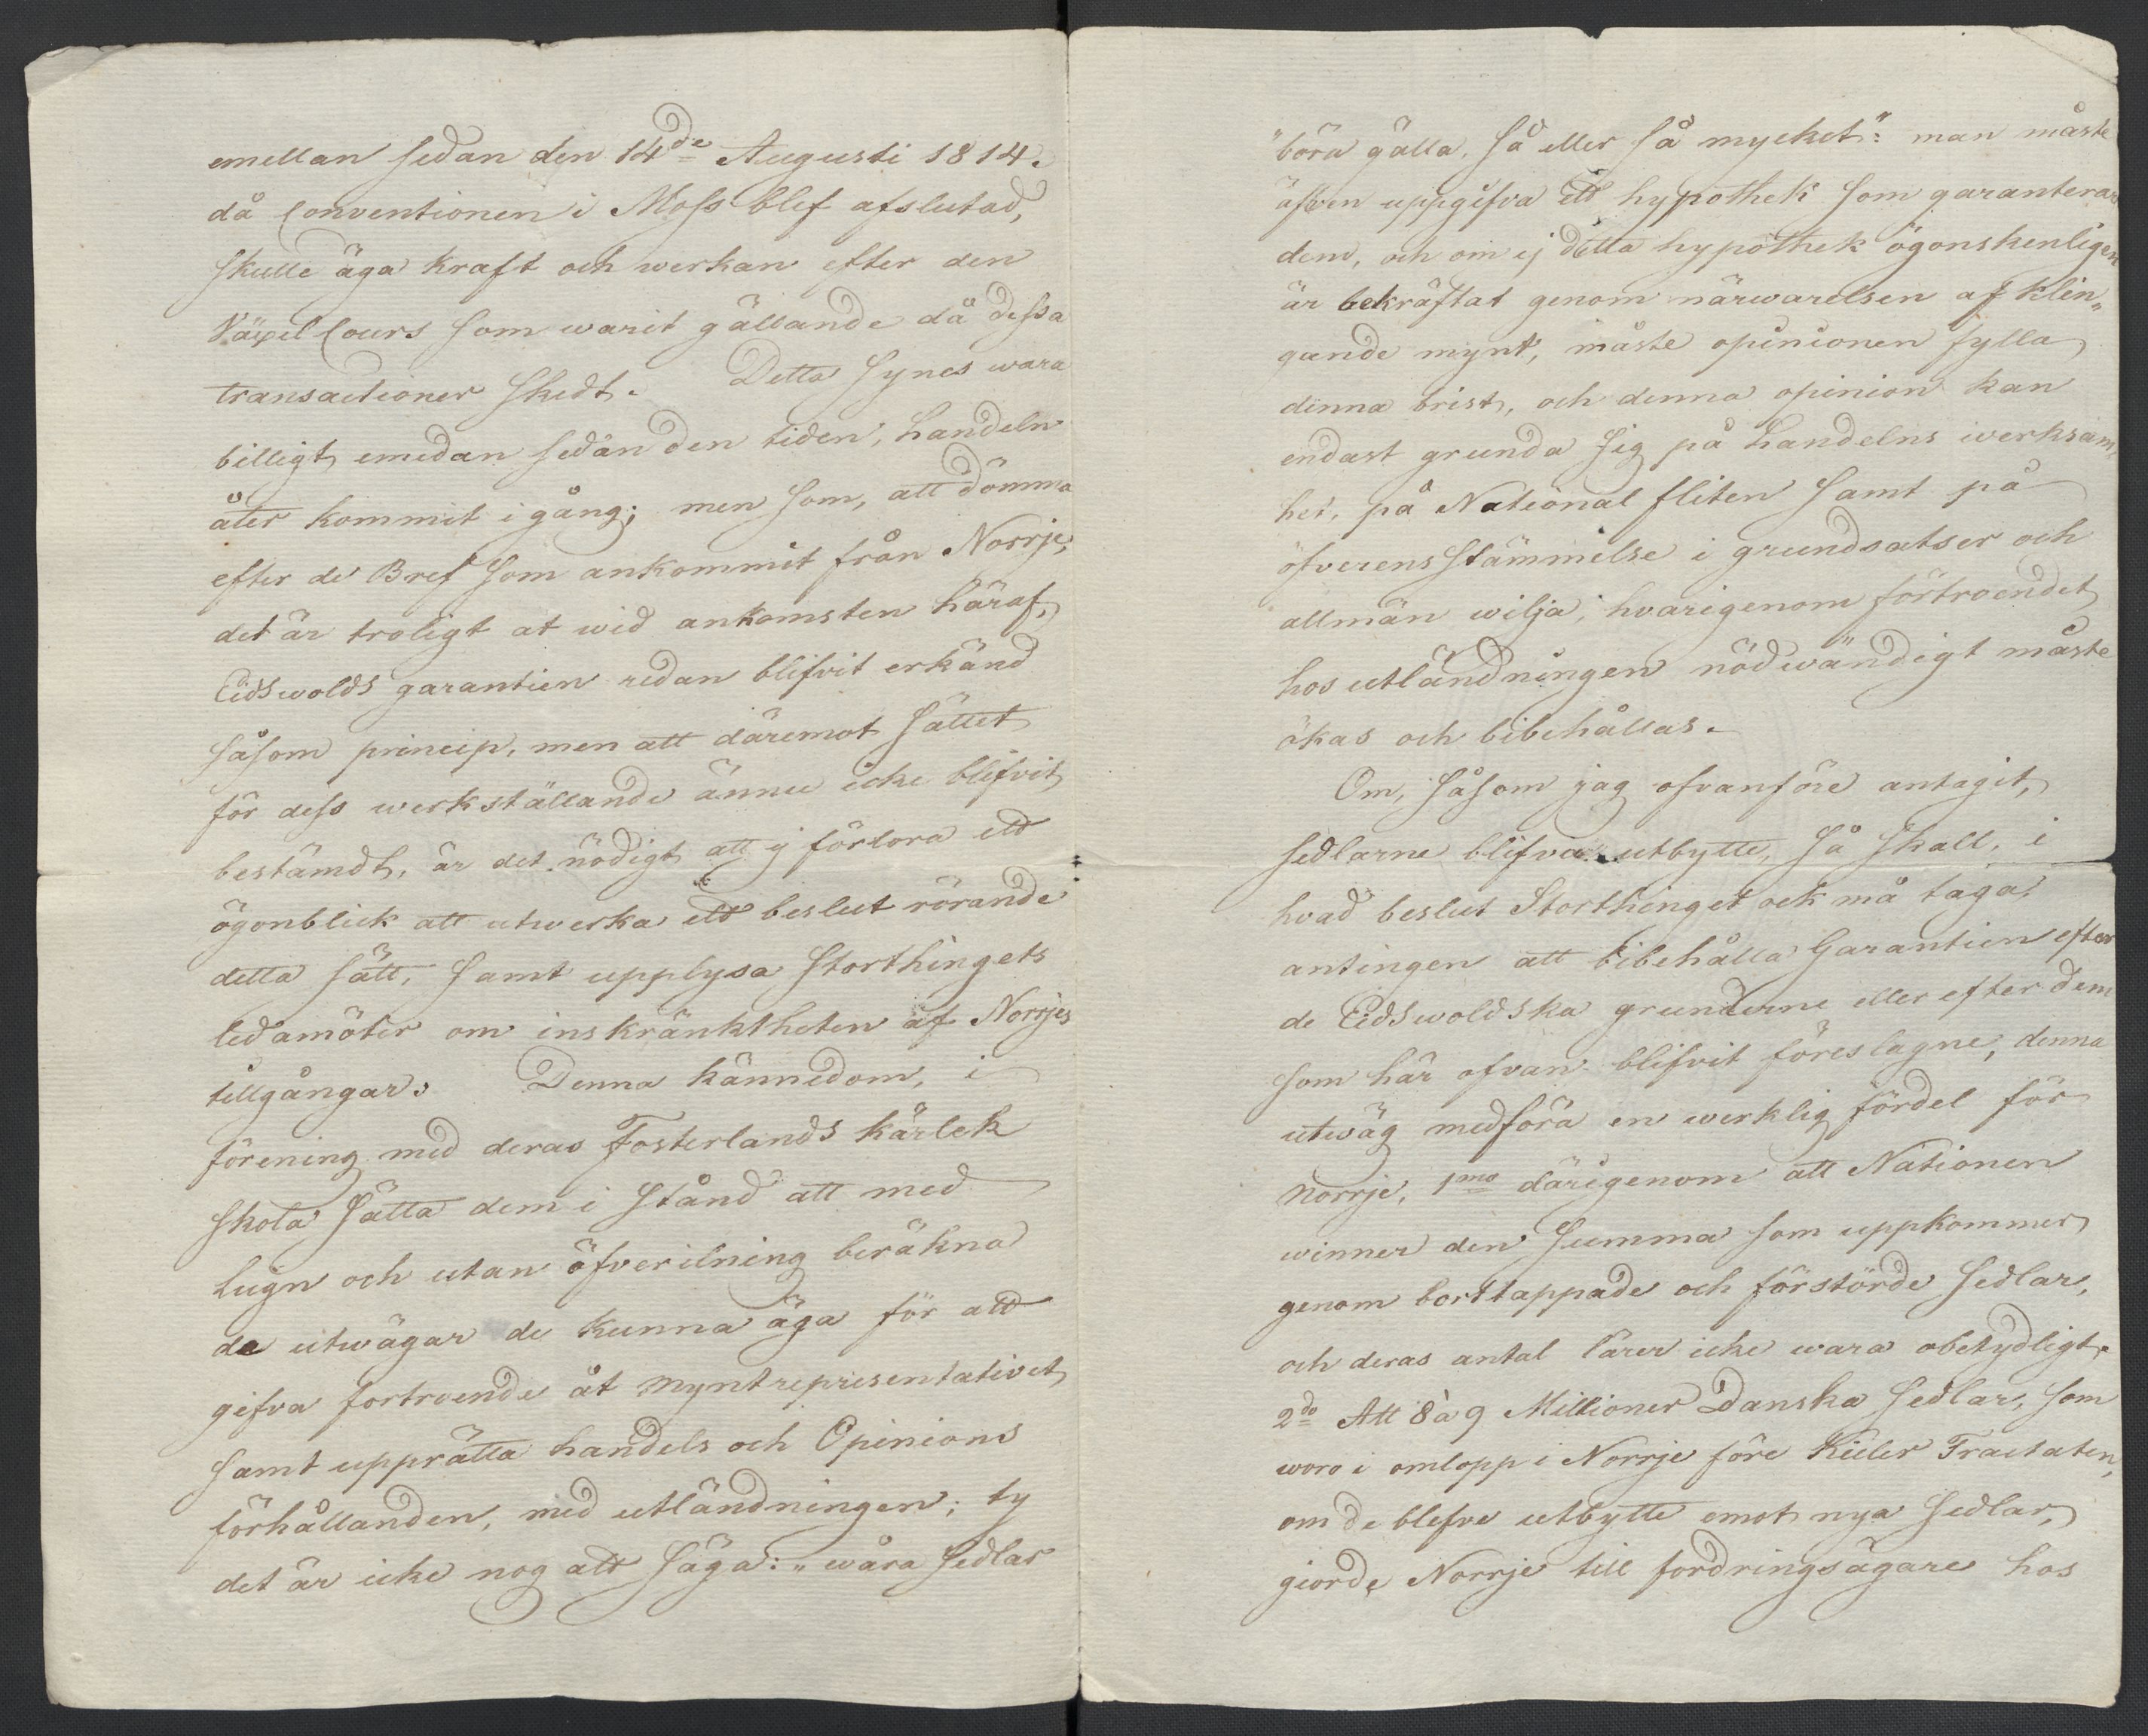 emellan sedan den 14de Augusti 1814.
då Conventionen i Moss blef afslutad,
skulle äga kraft och werkan efter den
Växel Cours som warit gällande då dessa
transactioner skedt. Detta synes wara
billigt emedan sedan den tiden, handeln
åter kommit i gång; men som, att dömma
efter de Bref som ankommit från Norrje,
det är troligt at wid ankomsten häraf,
Eidswolds garantien redan blifvit erkänd
såsom princip, men att däremot sättet
för dess werkställande ännu icke blifvit
bestämdt, är det nödigt att ej förlora ett
ögonblick att utwerka ett beslut rörande
detta sätt, samt upplysa Storthingets
ledamöter om inskränktheten af Norrjes
tillgångar. Denna kännedom, i
förening med deras Fosterlands kärlek
skola sätta dem i stånd att med
lugn och utan öfverilning beräkna
de utwägar de kunna äga för att
gifva fortroende åt Myntrepresentativet
samt upprätta handels och Opinions
förhållanden, med utländningen; ty
det är icke nog att säga: „wåra Sedlar
"böra gälla så eller så mycket": man måste
äfven uppgifva ett hypothek som garanterar
dem, och om ej detta hypothek ögonskenligen
är bekräftat genom närwarelsen af klin„
gande mynt, måste opinionen fylla
denna brist, och denna opinion kan
endast grunda sig på handelns werksam,
het, på National fliten samt på
öfverensstämmelse i grundsatser och
allmän wilja, hvarigenom förtroendet
hos utländningen nödwändigt måste
ökas och bibehållas.
Om, såsom jag ofvanföre antagit,
sedlarne blifva utbytte, så skall, i
hvad beslut Storthinget ock må taga,
antingen att bibehålla Garantien efter
de Eidswoldska grunderne eller efter dem
som här ofvan blifvit föreslagne, denna
utwäg medföra en werklig fördel för
Norrje, 1mo därigenom att Nationen
winner den Summa som uppkommer
genom borttappade och förstörde Sedlar,
och deras antal lärer icke wara obetydligt.
2do Att 8 à 9 Millioner Danska Sedlar, som
woro i omlopp i Norrje före Kieler Tractaten,
om de blefve utbytte emot nya Sedlar,
giorde Norrje till fordringsägare hos